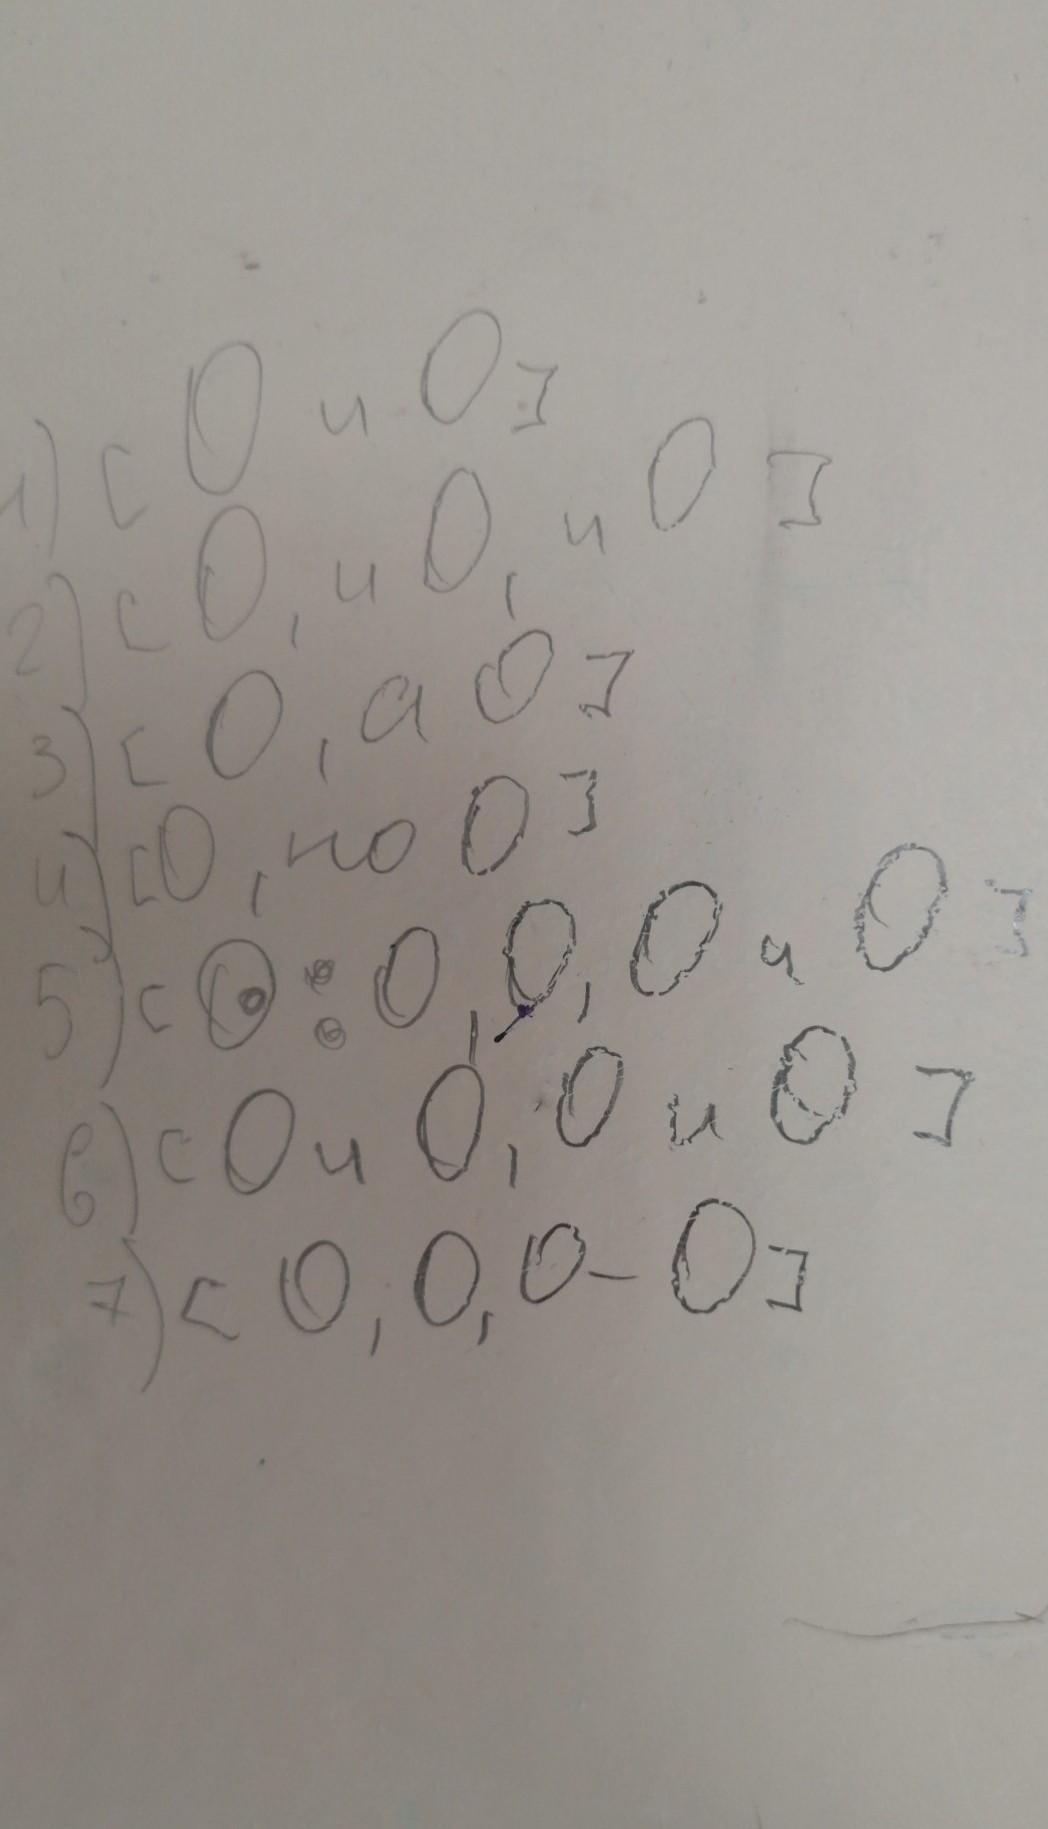 1) [О и О]
2) [О, и О, и О]
3) [О, а О]
4) [О, но О]
5) [О: О, О, О и О]
6) [О и О, О и О]
7) [О, О, О - О]